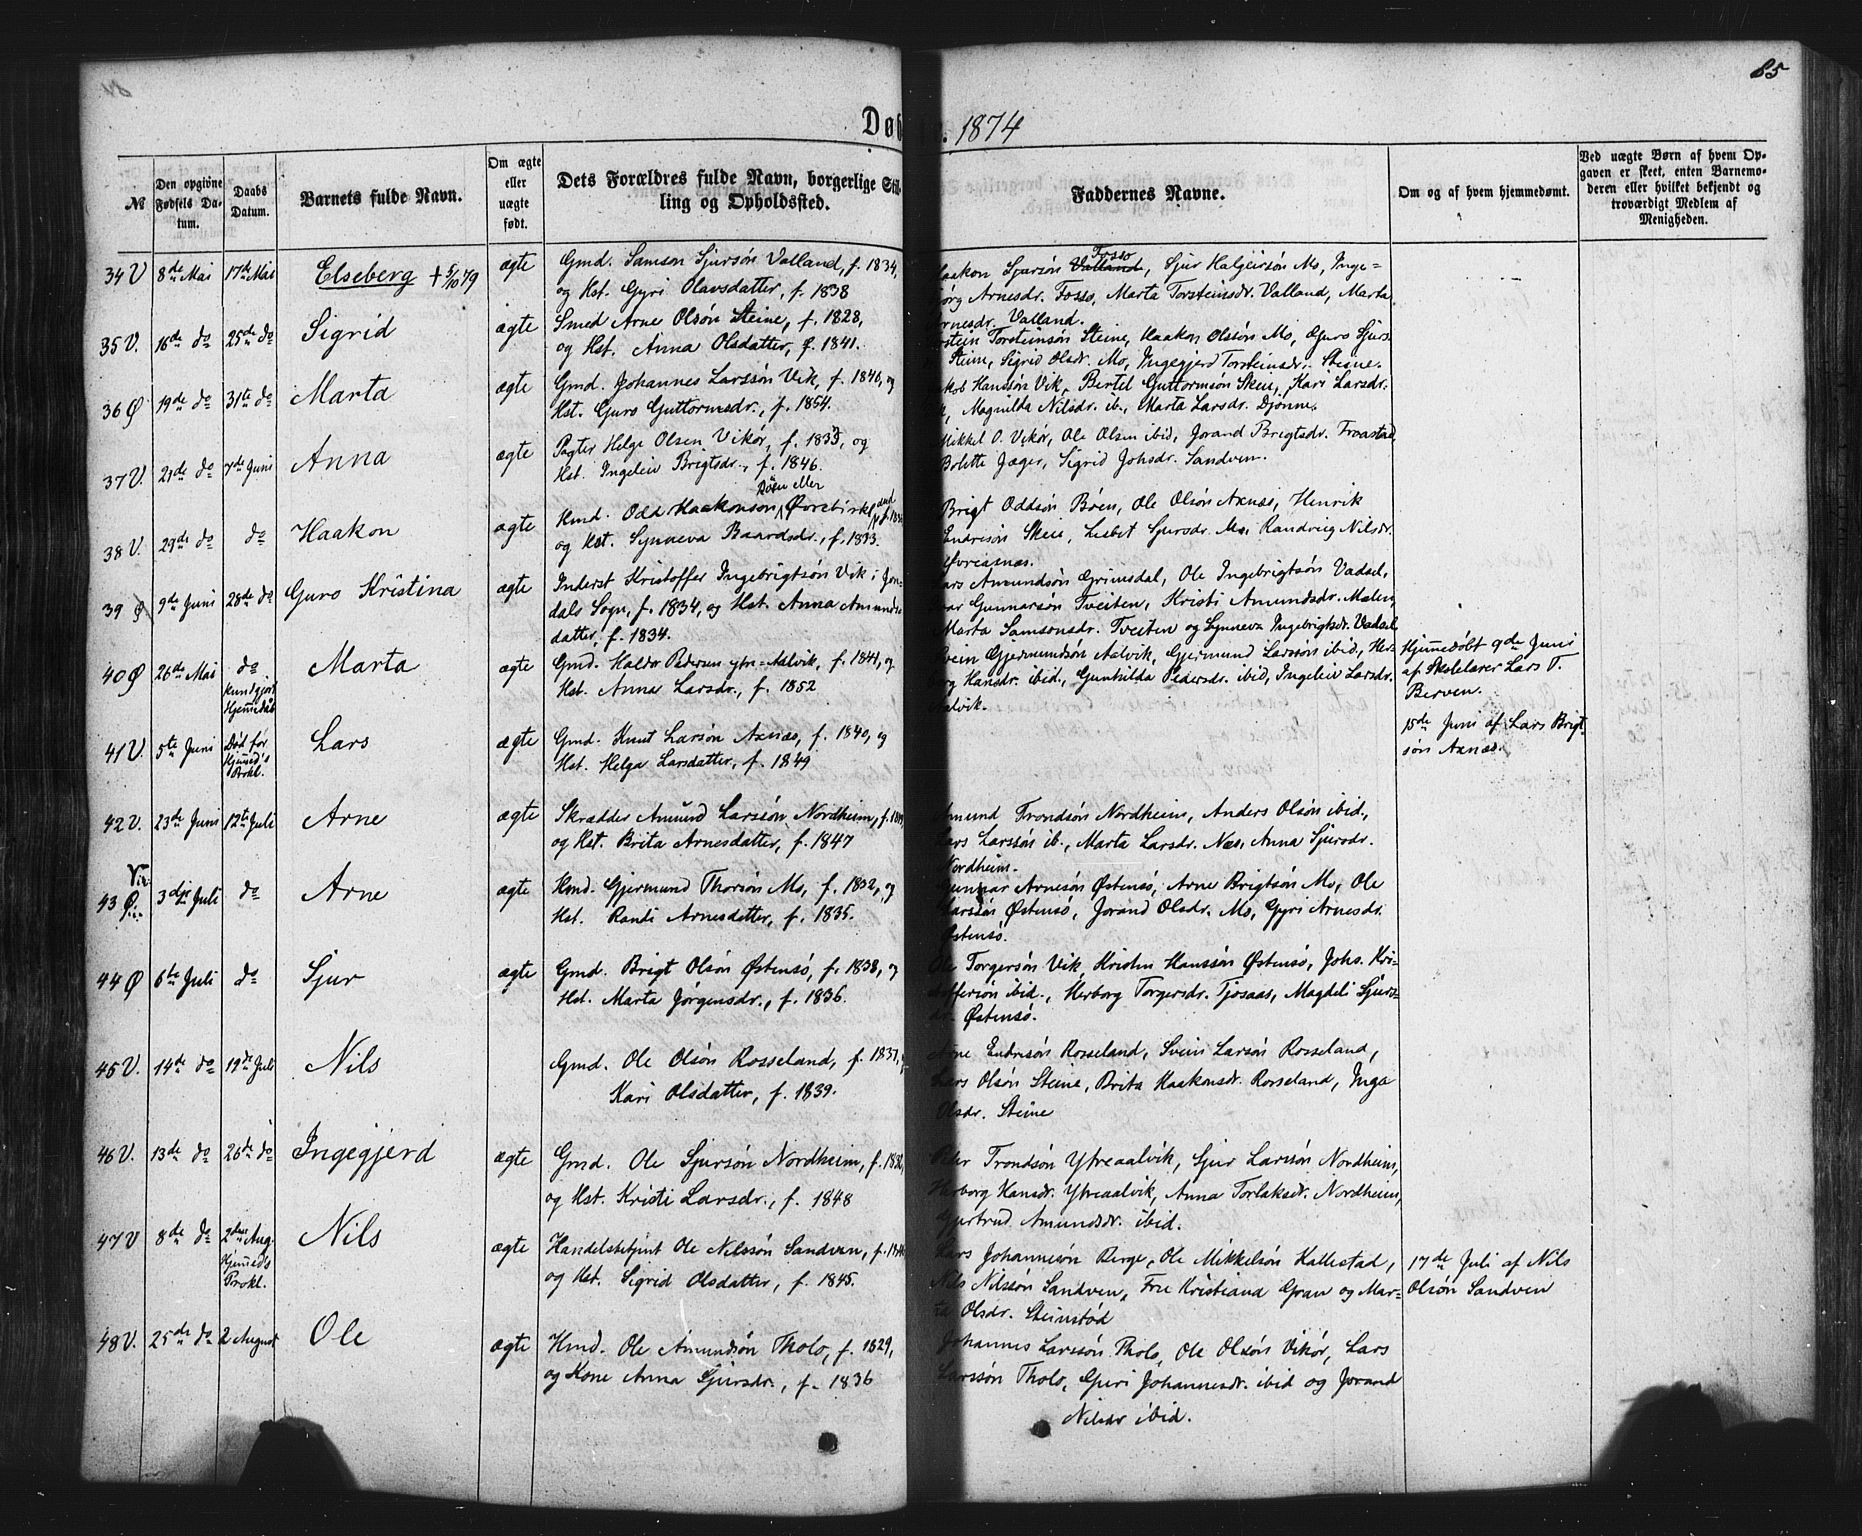 85
Døb. 1874
№
Den opgivne Fødsels Datum.
Daabs Datum.
Barnets fulde Navn.
Om ægte eller uægte født.
Dets Forældres fulde Navn, borgerlige Stilling og Opholdssted.
Faddernes Navne.
Om og af hvem hjemmedøbt.
Ved uægte Børn af hvem Opgaven er skeet, enten Barnemoderen eller hvilket bekjendt og troværdigt Medlem af Menigheden.
34 V 8de Mai 17de Mai Elseberg + 5/10 79 ægte Gmd. Samson Sjursøn Valland, f. 1834,
og Hst. Gyri Olavsdatter, f. 1838
Haakon Sjursøn Valland Fosso, Sjur Halgeirsøn Mo, Inge=
borg Arnesdr. Fosso, Marta Torsteinsdr. Valland, Marta
Arnesdr. Valland.
35 V. 16de do 25de do Sigrid ægte Smed Arne Olsøn Steine, f. 1828,
og Hst. Anna Olsdatter, f. 1841.
Torstein Torsteinsøn Steine, Haakon Olssøn Mo, Guro Sjurs
Steine, Sigrid Olsdr. Mo, Ingegjerd Torsteinsdr. Steine.
36 Ø 19de do 31te do Marta ægte Gmd. Johannes Larssøn Vik, f. 1840, og
Hst. Guro Guttormsdr., f. 1854.
Jakob Hansøn Vik, Bertel Guttormsøn Skeie, Kari Larsdr.
Magnilda Nilsdr. ib., Marta Larsdr. Djønne.
37 V. 21de do 7de Juni Anna ægte Pagter Helge Olsen Vikør, f. 1833, og
Hst. Ingeleiv Brigtsdr., f. 1846.
Mikkel O. Vikør, Ole Olsen ibid, Jorand Brigtsdr. Fraastad
Bolette Jæger, Sigrid Johsdr. Sandven.
38 V. 29de do do Haakon ægte Hmd. Odd Haakonsøn Øvrebirkeland
og Hst. Synneva Baardsdr., f. 1833.
Brigt Oddsøn Bøen, Ole Olsøn Axnæs, Henrik
Endresøn Skeie, Lisbet Sjursdr. Mo, Randveig Nilsdr.
39 Ø 9de Juni 28de do Guro Kristina ægte Inderst Kristoffer Ingebrigtsøn Vik i Jon=
dals Sogn, f. 1834, og Hst. Anna Amunds
datter, f. 1834.
Lars Amundsøn Grimsdal, Ole Ingebrigtsøn Vadsel,
Gunnarsøn Tveiten, Kristi Amundsdr. Malen,
Marta Samsonsdr. Tveiten og Synneva Ingebrigtsdr. Vadsel
40 Ø 26de Mai do Kundgjort Hjemmedåb Marta ægte Gmd. Haldo Pedersen ytre-Aalvik, f. 1841, og
Hst. Anna Larsdr., f. 1852
Svein Gjermundsøn Aalvik, Gjermund Larssøn ibid, Her=
borg Hansdr. ibid., Gunhilda Pedersdr. ibid, Ingeleiv Larsdr.
Aalvik.
Hjemmedøbt 9de Juni
af Skolelærer Lars T.
Berven.
41 V. 5te Juni Død før Hjemmed's Prkl. Lars ægte Gmd. Knut Larsøn Axnæs, f. 1840, og
Hst. Helga Larsdatter, f. 1849
15de Juni af Lars Brigt
søn Axnæs.
42 V. 23de Juni 12te Juli Arne ægte Skrædder Amund Larssøn Nordheim,
og Hst. Brita Arnesdatter, f. 1847
Amund Trondsøn Nordheim, Anders Olsøn ibid.,
Lars Larssøn ib., Marta Larsdr. Næs, Anna Sjursdr.
Nordheim.
43 Ø Vik 3die Juli do Arne ægte Hmd. Gjermund Thorsøn Mo, f. 1832, og
Hst. Randi Arnesdatter, f. 1835.
Gunnar Arnesøn Østensø, Arne Brigtsøn Mo, Ole
Larssøn Østensø, Jorand Olsdr. Mo, Gyri Arnesdr.
Østensø.
44 Ø 6te Juli do Sjur ægte Gmd. Brigt Olsøn Østensø, f. 1838, og
Hst. Marta Jørgensdr., f. 1836.
Ole Torgersøn Vik, Kristen Hanssøn Østensø, Johs. Kri=
stoffersøn ibid., Herborg Torgersdr. Tjosaas, Magdeli Sjurs=
dr. Østensø.
45 V. 14de do 19de Juli Nils Gmd. Ole Olsøn Rosseland, f. 1837,
Kari Olsdatter, f. 1839.
Arne Endresøn Rosseland, Svein Larsøn Rosseland,
Lars Olsøn Steine, Brita Haakonsdr. Rosseland, Inga
Olsdr. Steine
46 V. 13de do 26de do Ingegjerd ægte Gmd. Ole Sjursøn Nordheim,
og Hst. Kristi Larsdr., f. 1848
Peder Trondsøn Ytreaalvik, Sjur Larssøn Nordheim,
Herborg Hansdr. Ytreaalvik, Anna Torlaksdr. Nordheim,
Gjertrud Amundsdr. ibid.
47 V 8de do 2den Aug. Hjemmed's Prokl. Nils ægte Handelsbetjent Ole Nilssøn Sandven,
og Hst. Sigrid Olsdatter, f. 1845.
Lars Johannesøn Berge, Ole Mikkelsøn Kallestad,
Nils Nilssøn Sandven, Fru Kristiana Gran og Mar=
ta Olsdr. Steinstød
17de Juli af Nils
Olsøn Sandven
48 V. 25de do 2 August Ole ægte Hmd. Ole Amundsøn Tholo, f. 1829,
og Kone Anna Sjursdr., f. 1836
Johannes Larssøn Tholo, Ole Olsøn Vikør, Lars
Larssøn Tholo, Guri Johannesdr. ibid og Jorand
Nilsdr ibid.